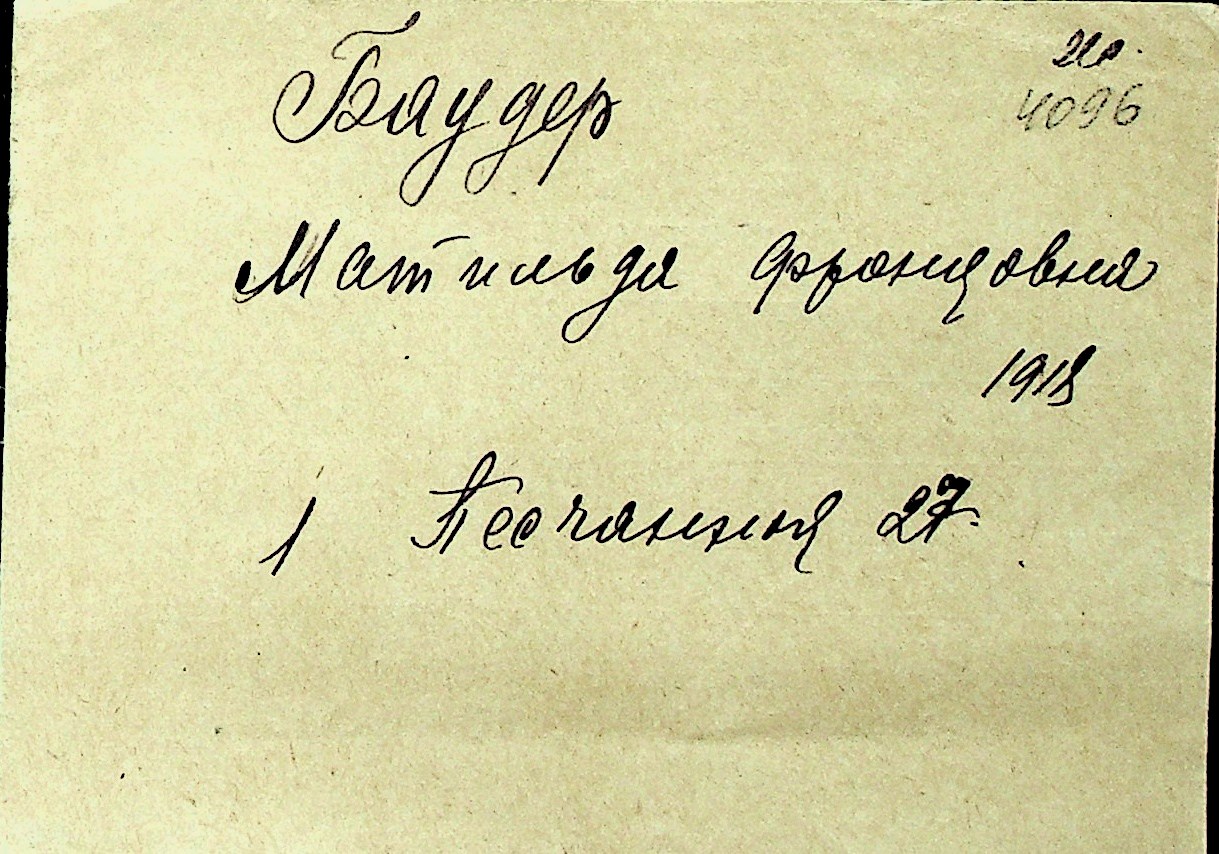 Баудер
4096
Матильда Францовна
1918
1 Песчанная 27